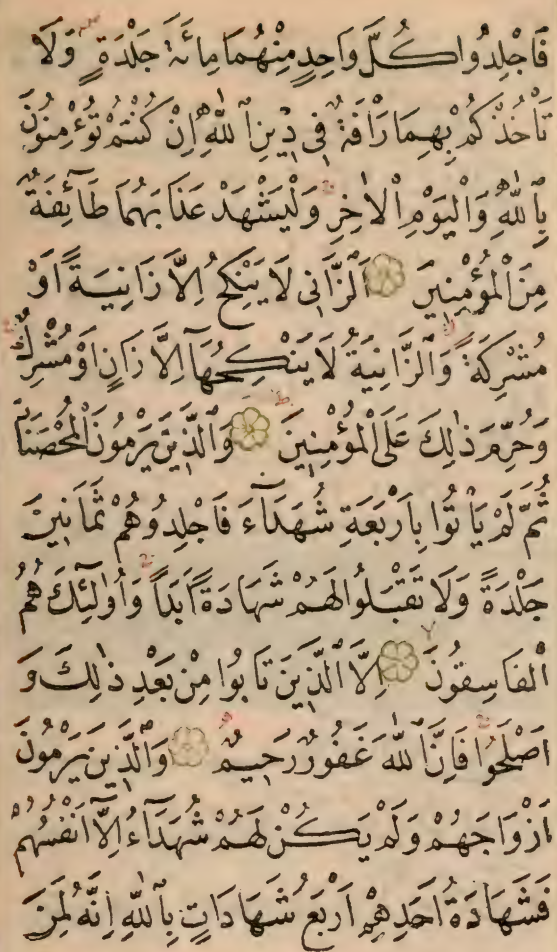 فَاجْلِدُوا كُلَّ وَاحِدٍ مِنْهُمَا مِائَةَ جَلْدَةٍ وَلَا
تَأْخُذْكُمْ بِهِمَا رَأْفَةٌ فِي دِينِ اللّٰهِ إِنْ كُنْتُمْ تُؤْمِنُونَ
بِاللّٰهِ وَالْيَوْمِ الْاٰخِرِ وَلْيَشْهَدْ عَذَابَهُمَا طَائِفَةٌ
مِنَ الْمُؤْمِنِينَ اَلزَّانِي لَا يَنْكِحُ اِلَّا زَانِيَةً اَوْ
مُشْرِكَةً وَالزَّانِيَةُ لَا يَنْكِحُهَا اِلَّا زَانٍ اَوْ مُشْرِكٌ
وَحُرِّمَ ذٰلِكَ عَلَى الْمُؤْمِنِينَ وَالَّذِينَ يَرْمُونَ الْمُحْصَنَاتِ
ثُمَّ لَمْ يَأْتُوا بِاَرْبَعَةِ شُهَدَآءَ فَاجْلِدُوهُمْ ثَمَانِينَ
جَلْدَةً وَلَا تَقْبَلُوا لَهُمْ شَهَادَةً اَبَدًا وَاُولٰئِكَ هُمُ
الْفَاسِقُونَ اِلَّا الَّذِينَ تَابُوا مِنْ بَعْدِ ذٰلِكَ وَ
اَصْلَحُوا فَاِنَّ اللّٰهَ غَفُورٌ رَحِيمٌ وَالَّذِينَ يَرْمُونَ
اَزْوَاجَهُمْ وَلَمْ يَكُنْ لَهُمْ شُهَدَآءُ اِلَّا اَنْفُسُهُمْ
فَشَهَادَةُ اَحَدِهِمْ اَرْبَعُ شَهَادَاتٍ بِاللّٰهِ اِنَّهُ لَمِنَ